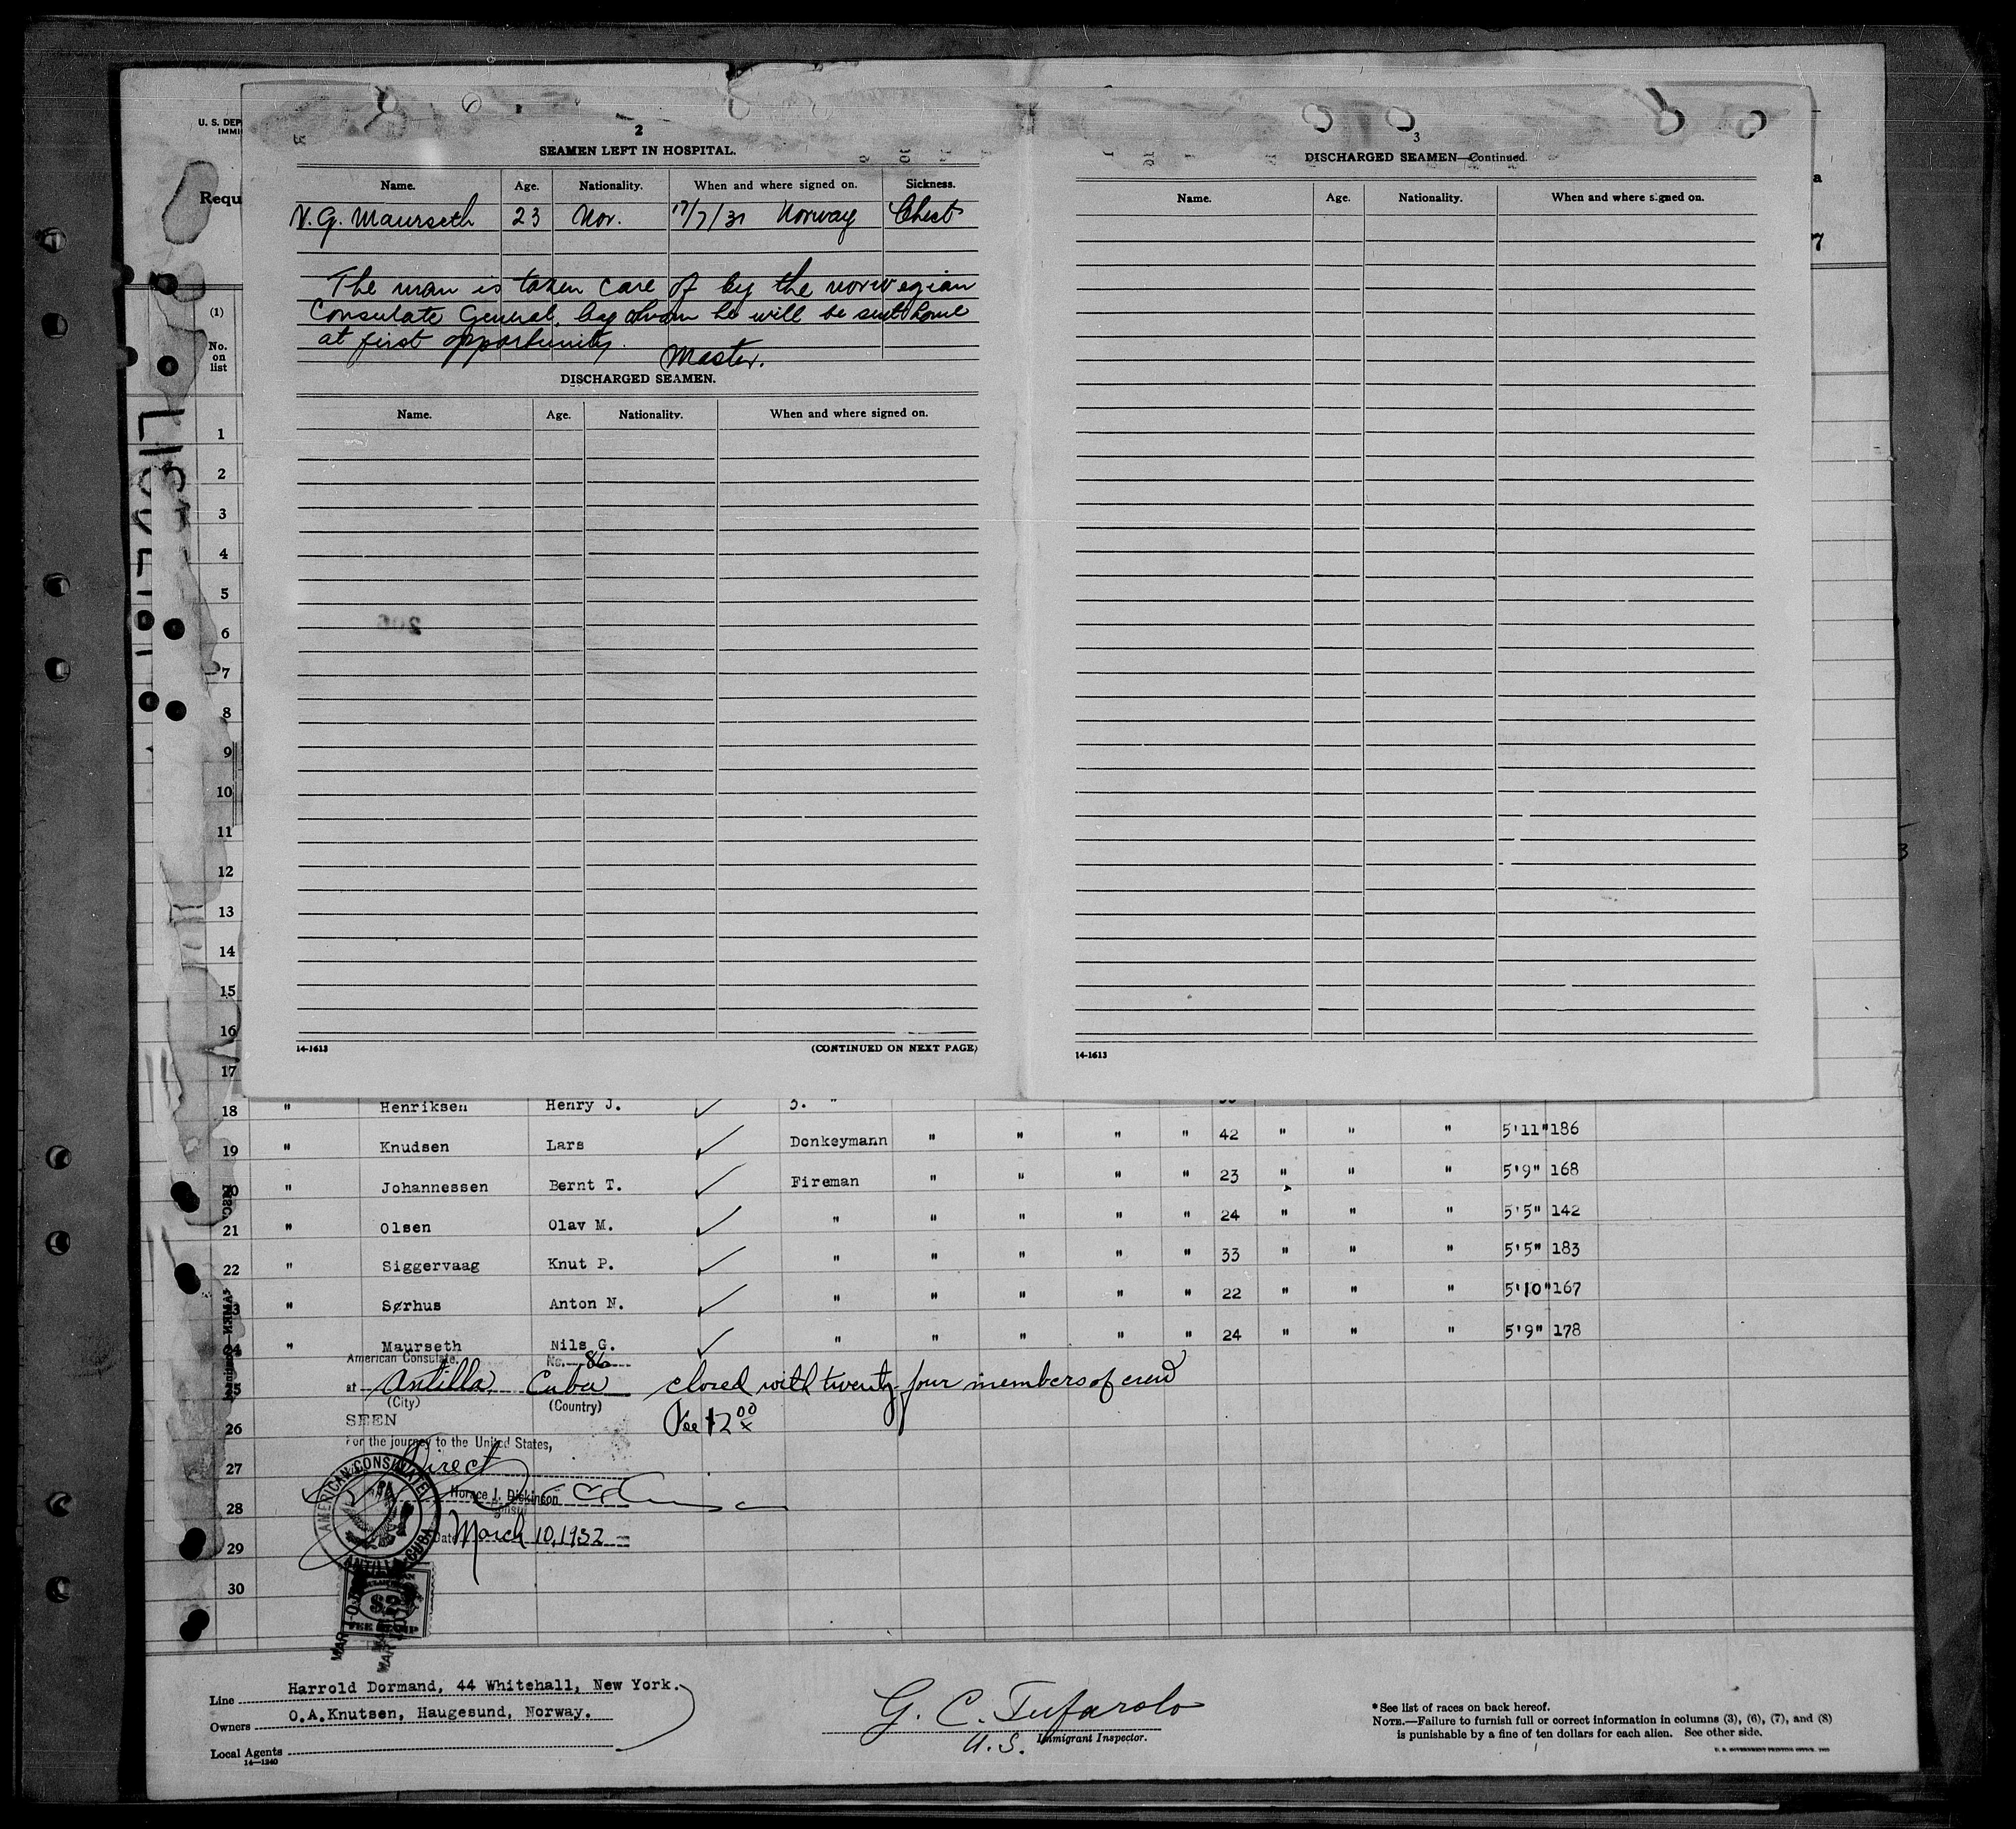 U. S. DEP
IMMI
Requ
2
SEAMEN LEFT IN HOSPITAL.
Name. Age. Nationality. When and where signed on. Sickness.
N. G. Maurseth 23 Nor. 17/7/31 Norway Chest
The man is taken care of by the norwegian
Consulate General, by whom he will be sent home
at first opportunity.
Master.
DISCHARGED SEAMEN.
Name. Age. Nationality. When and where signed on.
14-1613 (CONTINUED ON NEXT PAGE)
3
DISCHARGED SEAMEN—Continued.
Name. Age. Nationality. When and where signed on.
14-1613
a
7
3
(1)
No.
on
list
1
2
3
4
5
6
7
8
9
10
11
12
13
14
15
16
17
18 " Henriksen Henry J. ✓ 3. "
19 " Knudsen Lars ✓ Donkeymann " " " " 42 " " " 5'11" 186
20 " Johannessen Bernt T. ✓ Fireman " " " " 23 " " " 5'9" 168
21 " Olsen Olav M. ✓ " " " " " 24 " " " 5'5" 142
22 " Siggervaag Knut P. ✓ " " " " " 33 " " " 5'5" 183
23 " Sørhus Anton N. ✓ " " " " " 22 " " " 5'10" 167
24 " Maurseth Nils G. ✓ " " " " " 24 " " " 5'9" 178
American Consulate. No. 86
25 at Antilla, Cuba closed with twenty four members of crew
(City) (Country)
26 SEEN Fee $2.00
For the journey to the United States,
27 Direct
28 Horace J. Dickinson
Consul
29 Date March 10, 1932
AMERICAN CONSULATE
ANTILLA, CUBA
30
$2
FEE STAMP
Line Harrold Dormand, 44 Whitehall, New York.
Owners O.A.Knutsen, Haugesund, Norway.
Local Agents
14—1240
G. C. Tufarolo
U.S. Immigrant Inspector.
* See list of races on back hereof.
NOTE.—Failure to furnish full or correct information in columns (3), (6), (7), and (8)
is punishable by a fine of ten dollars for each alien. See other side.